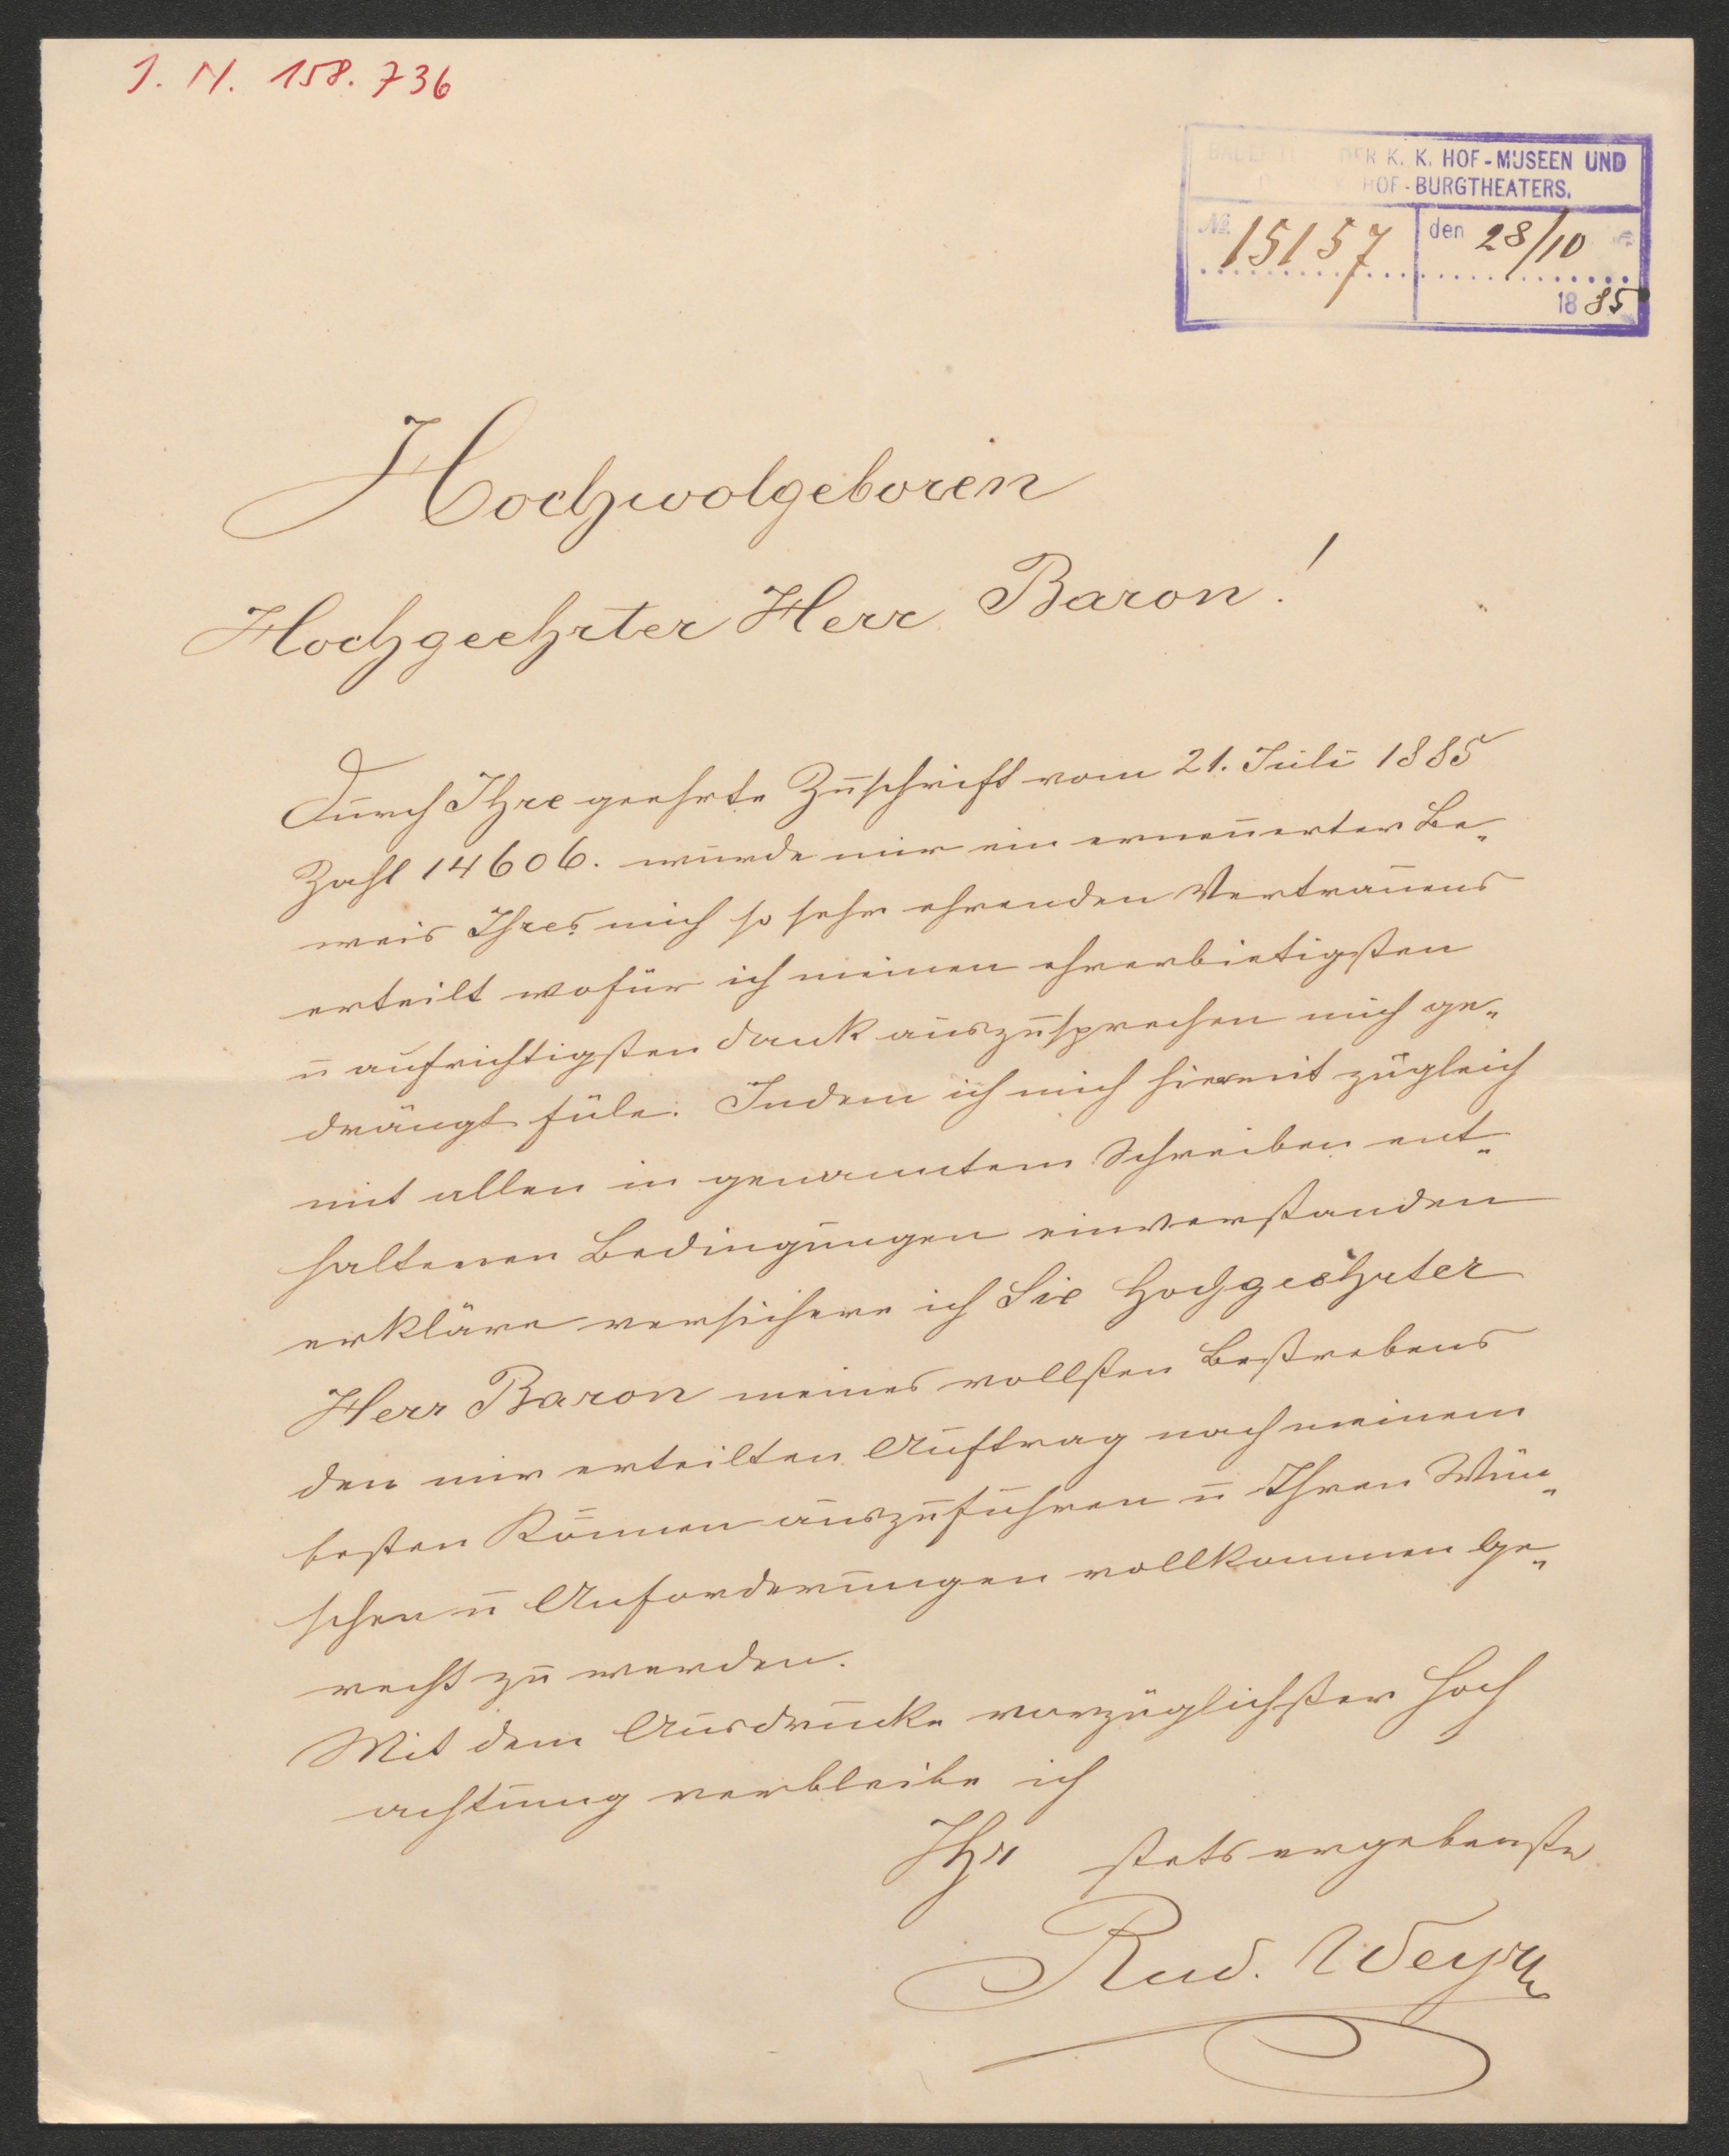 J. N. 158.736
DER K. K. HOF-MUSEEN UND
HOF-BURGTHEATERS.
№ 15157 den 28/10
1885
Hochwolgeboren
Hochgeehrter Herr Baron!
Durch Ihre geehrte Zuschrift vom 21. Juli 1885
Zahl 14606. wurde mir ein erneuerter Be„
weis Ihres mich so sehr ehrenden Vertrauens
erteilt wofür ich meinen ehrerbietigsten
u aufrichtigsten Dank auszusprechen mich ge„
drängt füle. Indem ich mich hiermit zugleich
mit allen in genanntem Schreiben ent„
haltenen Bedingungen einverstanden
erkläre versichere ich Sie Hochgeehrter
Herr Baron meines vollsten Bestrebens
den mir erteilten Auftrag nach meinem
besten Können auszuführen u Ihren Wün„
schen u Anforderungen vollkommen ge„
recht zu werden.
Mit dem Ausdrucke vorzüglichster Hoch
achtung verbleibe ich
Ihr stets ergebenster
Rud. Weyr